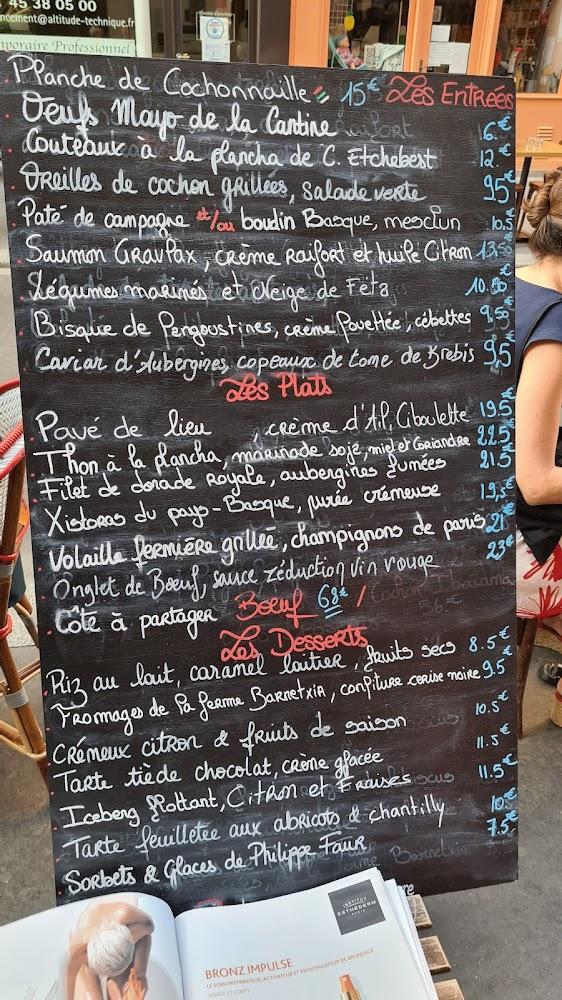 45 38 05 00
ncement@altitude-technique.fr
mporaire Professionnel
Planche de Cochonnaille 15€ Les Entrées
Oeufs Mayo de la Cantine 6€
Couteaux à la plancha de C. Etchebest 12€
Oreilles de cochon grillées, salade verte 9,5€
Paté de campagne et/ou boudin Basque, mesclun 10.5€
Saumon Gravlax, crème raifort et huile Citron 13.5€
Légumes marinés et Neige de Féta 10.50€
Bisque de Langoustines, crème fouettée, cébettes 9,50€
Caviar d'Aubergines, copeaux de tome de brebis 9,5€
Les Plats
Pavé de lieu, crème d'Ail, Ciboulette 19.5€
Thon à la plancha, marinade soja, miel et Coriandre 22.5€
Filet de dorade royale, aubergines fumées 21.5€
Xistoras du pays-Basque, purée crémeuse 19,5€
Volaille fermière grillée, champignons de paris 21€
Onglet de Boeuf, sauce réduction vin rouge 23€
Côte à partager Boeuf 68€ /
Les Desserts
Riz au lait, caramel laitier, fruits secs 8.5€
Fromages de la ferme Barnetxia, confiture cerise noire 9.5€
Crémeux citron & fruits de saison 10.5€
Tarte tiède chocolat, crème glacée 11.5€
Iceberg flottant, Citron et Fraises 11.5€
Tarte feuilletée aux abricots & chantilly 10€
Sorbets & Glaces de Philippe Faur 7.5€
INSTITUT
ESTHEDERM
PARIS
BRONZ IMPULSE
LE SOIN PRÉPARATEUR, ACTIVATEUR ET PROLONGATEUR DE BRONZAGE
VISAGE ET CORPS